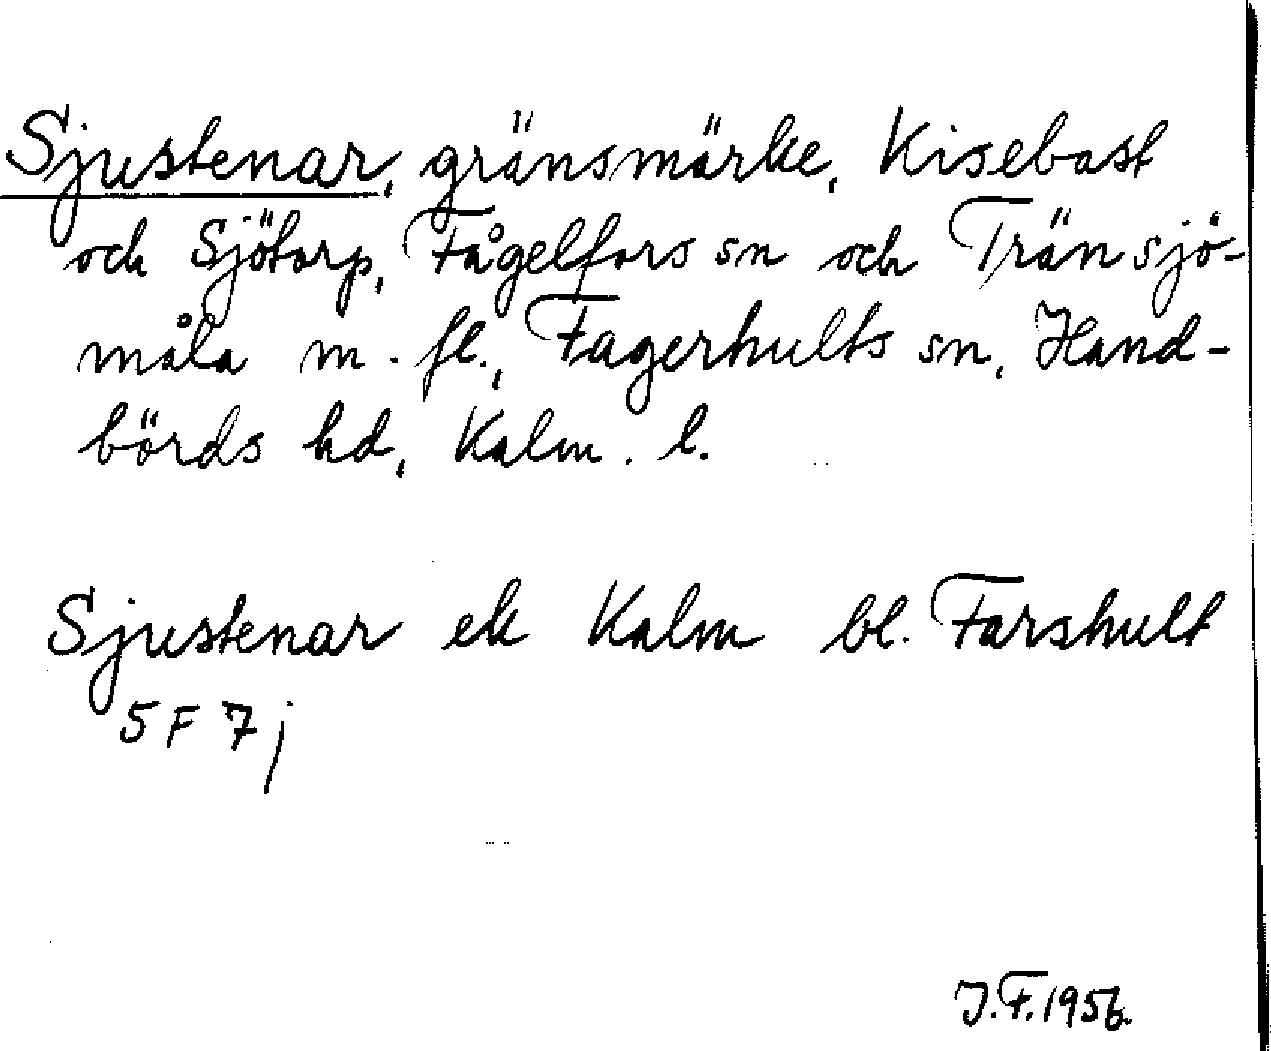 Sjustenar, gränsmärke, Kisebast
och Sjötorp, Fågelfors sn och Tränsjö-
måla m. fl., Fagerhults sn, Hand-
börds hd, Kalm. l.
Sjustenar ek Kalm bl. Farshult
5 F 7 j
J.F. 1956.